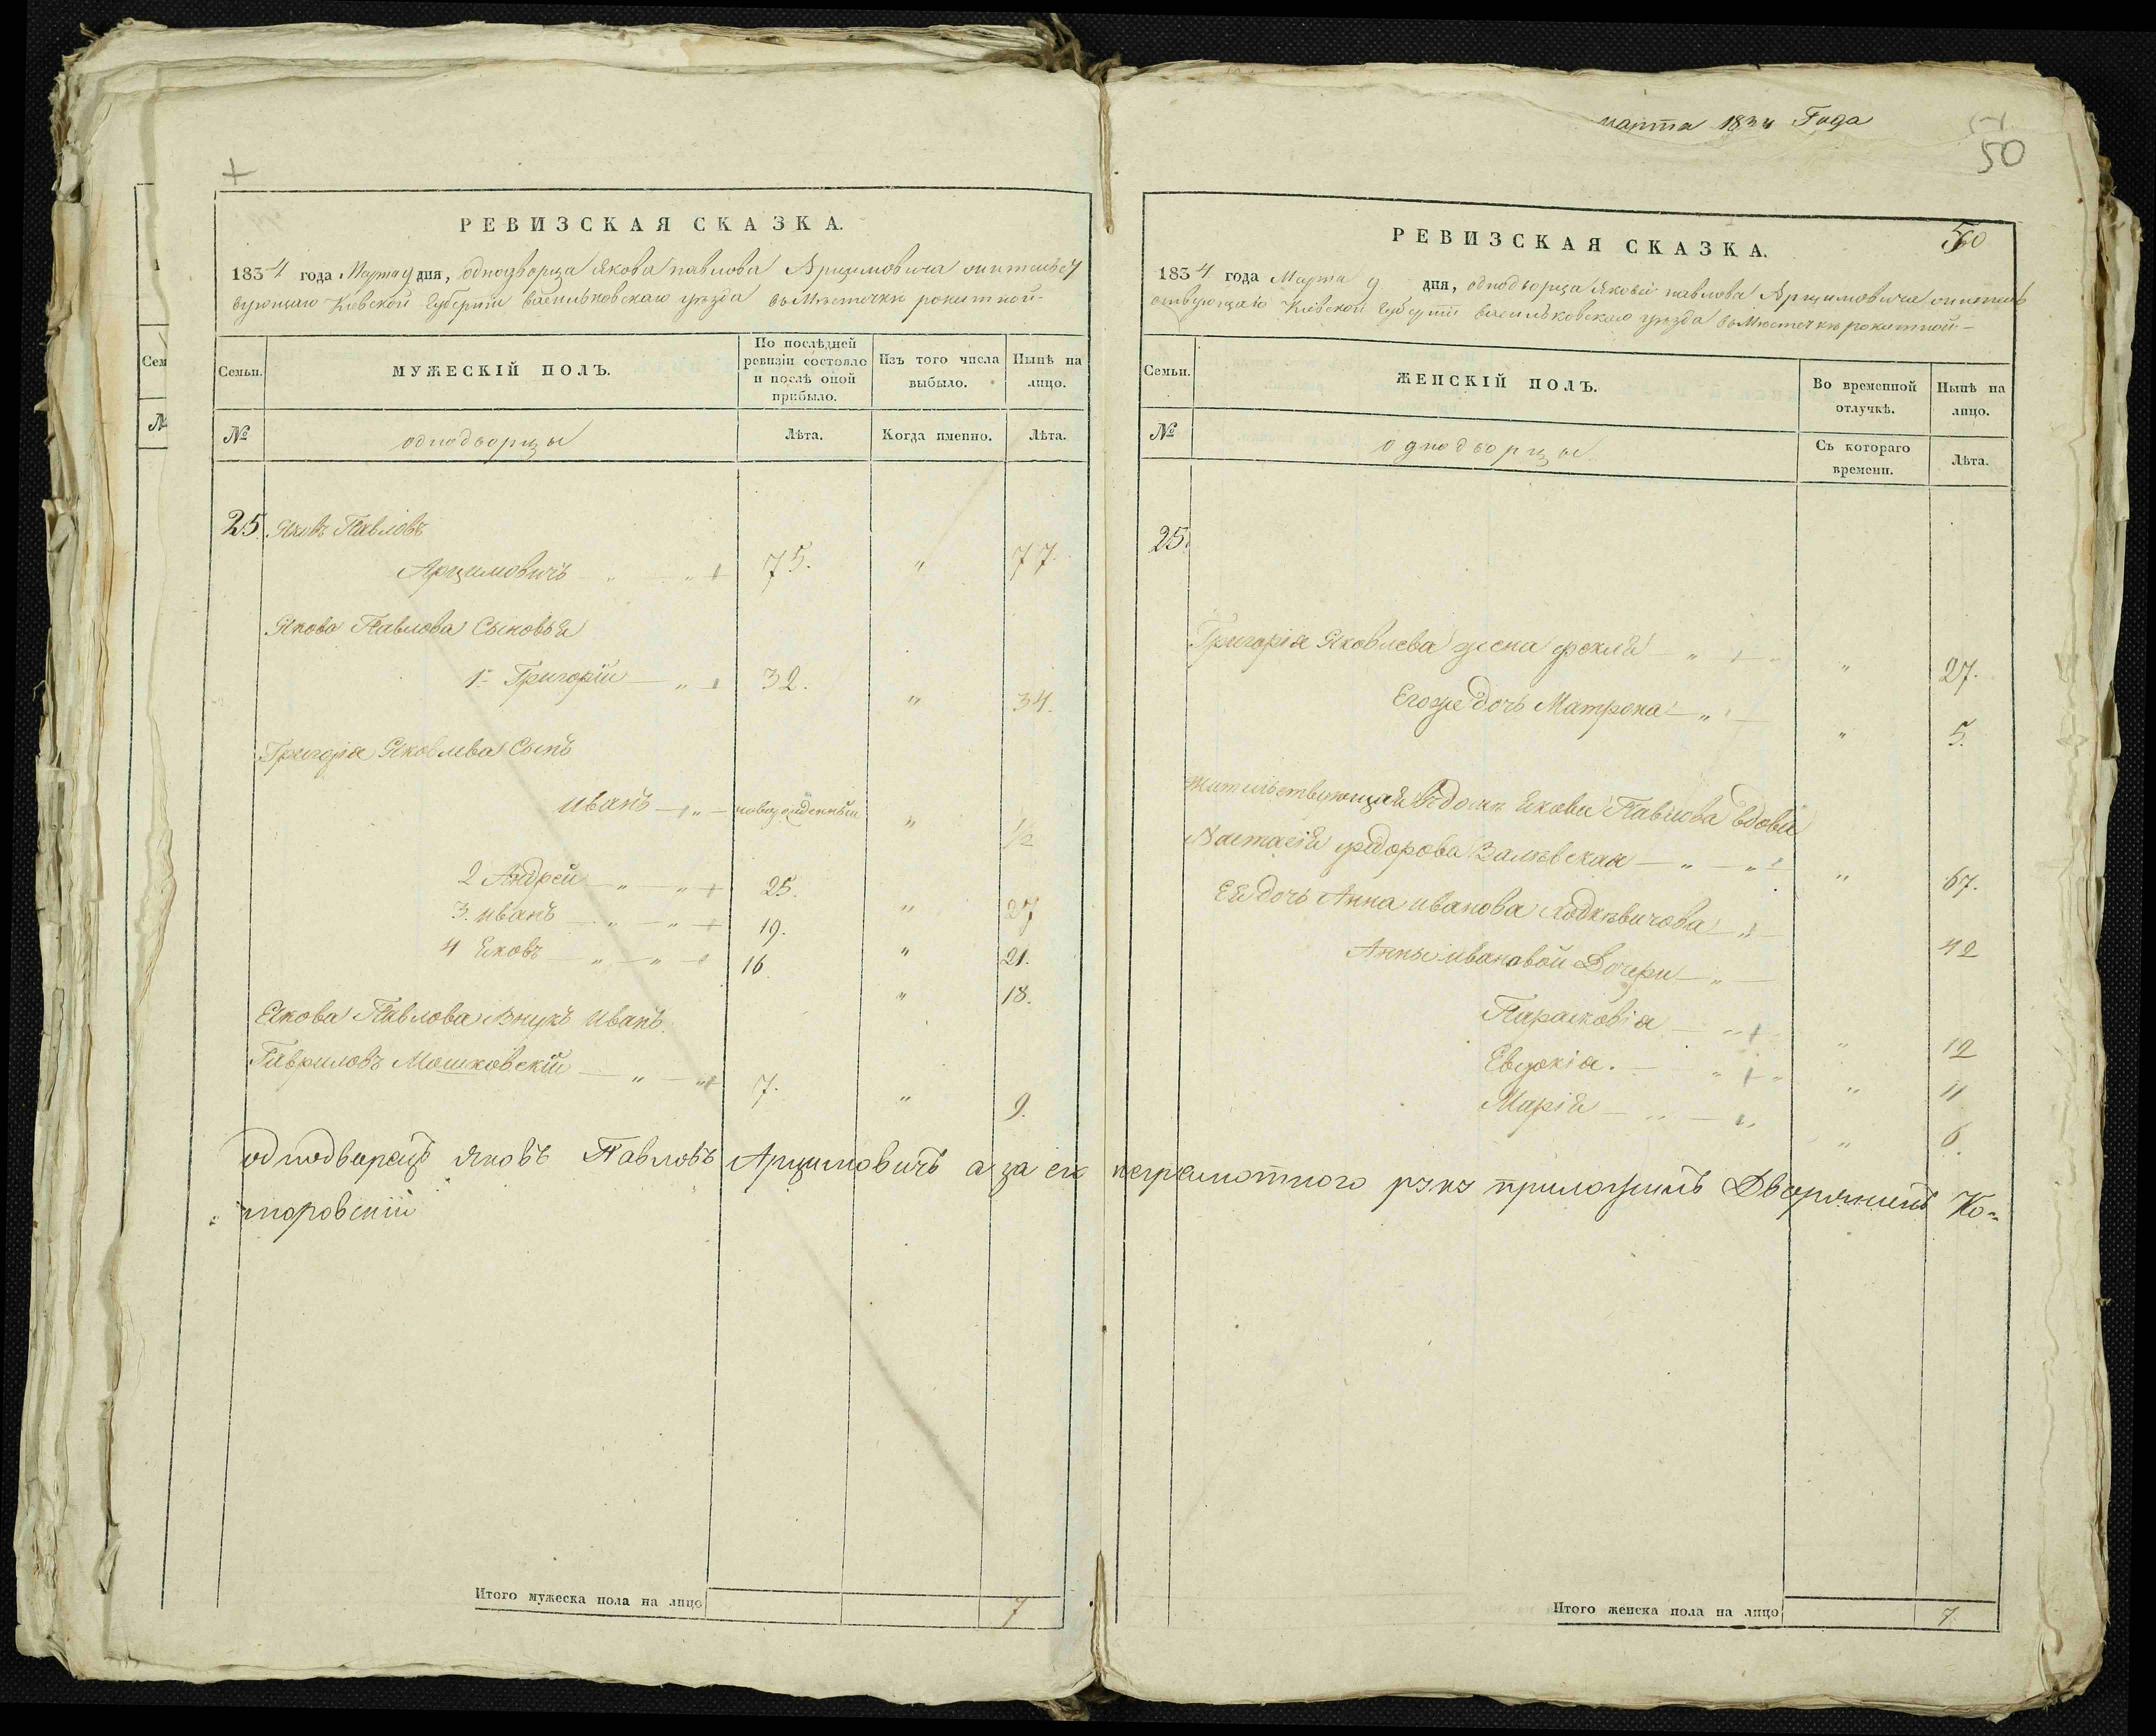 Сем
№
РЕВИЗСКАЯ СКАЗКА.
1834 года Марта 9 дня, однодворца Якова павлова Арцимовича жительст
вующаго Кіевской Губерніи васильковскаго уѣзда въ Мѣстечкѣ рокитной-
Семьи.
МУЖЕСКІЙ ПОЛЪ.
По послѣдней ревизіи состояло и послѣ оной прибыло.
Изъ того числа выбыло.
Нынѣ на лицо.
№
однодворцы
Лѣта.
Когда именно.
Лѣта.
25. Яковъ Павловъ
Арцимовичъ — „ — „ 75. „ 77.
Якова Павлова Сыновья
1й Григорій — „ 32. „ 34.
Григорія Яковлева Сынъ
иванъ — „ — новорожденный „ 1/2
2 Андрей — „ — „ 25. „ 27
3. иванъ — „ — „ 19. „ 21.
4 Яковъ — „ — „ 16. „ 18.
Якова Павлова Внукъ иванъ
Гавриловъ Мошковскій — „ — „ 7. „ 9.
Итого мужеска пола на лицо 7
марта 1834 Года
50
50
РЕВИЗСКАЯ СКАЗКА.
1834 года Марта 9 дня, однодворца Якова павлова Арцимовича жительс
ствующаго Кіевской Губерніи васильковскаго уѣзда въ Мѣстечкѣ рокитной-
Семьи.
ЖЕНСКІЙ ПОЛЪ.
Во временной отлучкѣ.
Нынѣ на лицо.
№
однодворцы
Съ котораго времени.
Лѣта.
25.
Григорія Яковлева жена фекла — „ „ 27.
Егоже дочь Матрона — „ — „ 5.
Жительствующая въ домѣ Якова Павлова вдова
Настасія федорова Залѣвская — „ — „ „ 67.
Ея дочь Анна иванова Ходкѣвичова — „ — 42
Анны ивановой Дочери — „ —
Парасковія — „ „ 12
Евдокія. — „ „ „ 11
Марія — „ — „ „ 6.
однодворецъ яковъ Павловъ Арцимовичъ а за его неграмотного руку приложилъ Дворянинъ Ко-
торовскій
Итого женска пола на лицо 7.